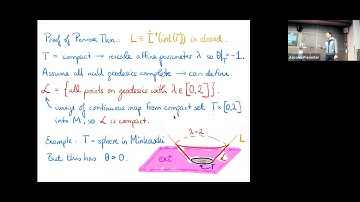 Proof of Penrose Thm.: L ≡ İ⁺(int(T)) is closed.
T = compact → rescale affine parameter λ so θ|_T = -1.
Assume all null geodesics complete → can define
ℒ = {all points on geodesics with λ ∈ [0,2]}.
image of continuous map from compact set T × [0,2]
into M, so ℒ is compact.
Example: T = sphere in Minkowski
But this has θ > 0.
λ=2
L
ext
T